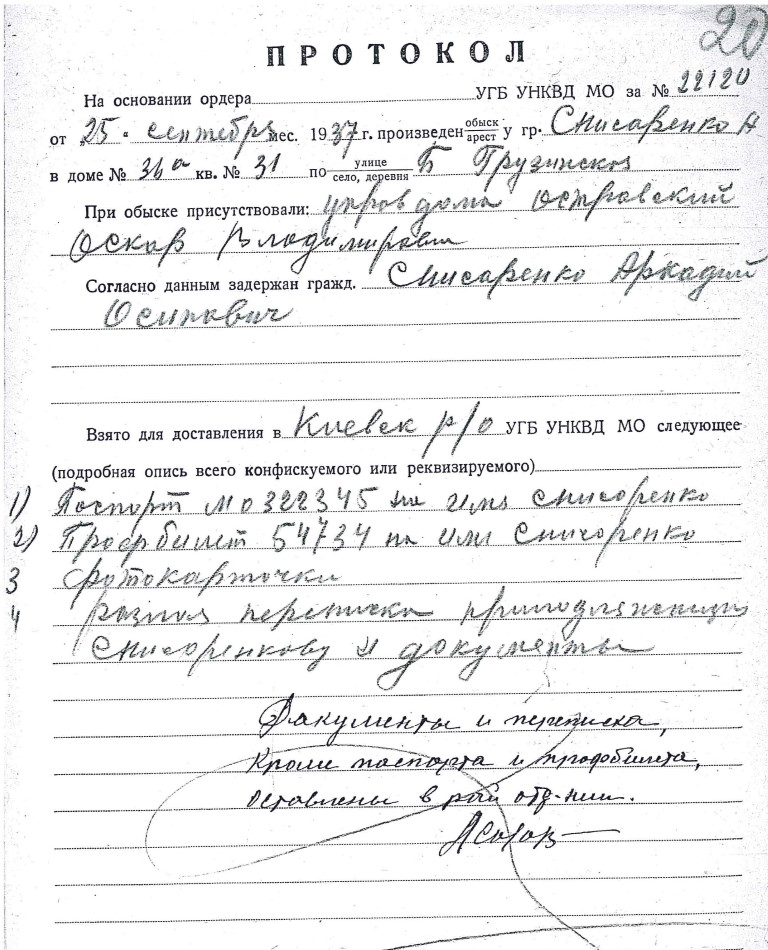 20
ПРОТОКОЛ
На основании ордера УГБ УНКВД МО за № 22120
от „25" сентебря мес. 1937 г. произведен обыск арест у гр. Снисаренко А
в доме № 36а кв. № 31 по улице село, деревня Б Грузинской
При обыске присутствовали: упров дома Островский
Оскар Владимирович
Согласно данным задержан гражд. Снисаренко Аркадий
Осипович
Взято для доставления в Киевск р/о УГБ УНКВД МО следующее
(подробная опись всего конфискуемого или реквизируемого)
1) Паспорт МО 322345 на имя Снисоренко
2) Профбилет 54734 на имя Снисоренко
3 фотокарточки
4 разная переписка приподлежащия
Снисоренкову и документы
Документы и переписка,
кроме паспорта и профбилета,
оставлены в рай отд-нии.